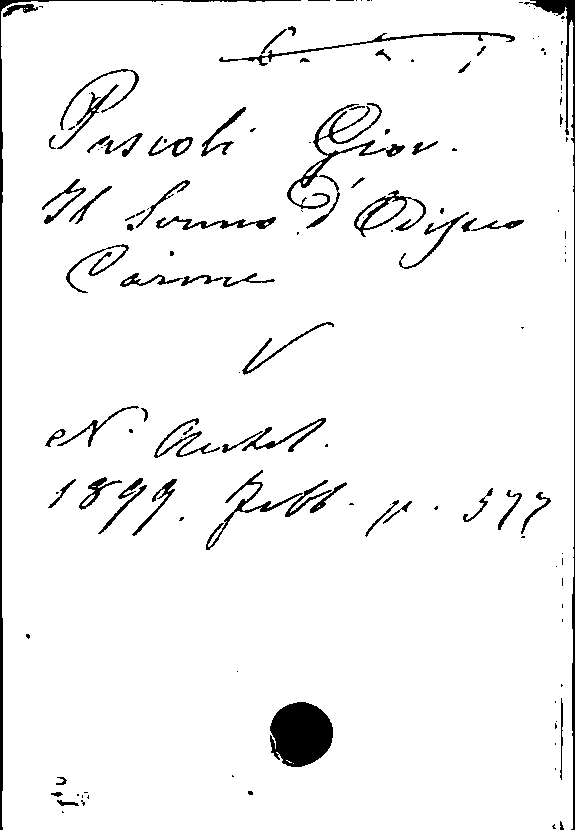 Pascoli Giov.
Il Sonno d'Odisseo
Carme
V
N. Antol.
1899. Febb. p. 577